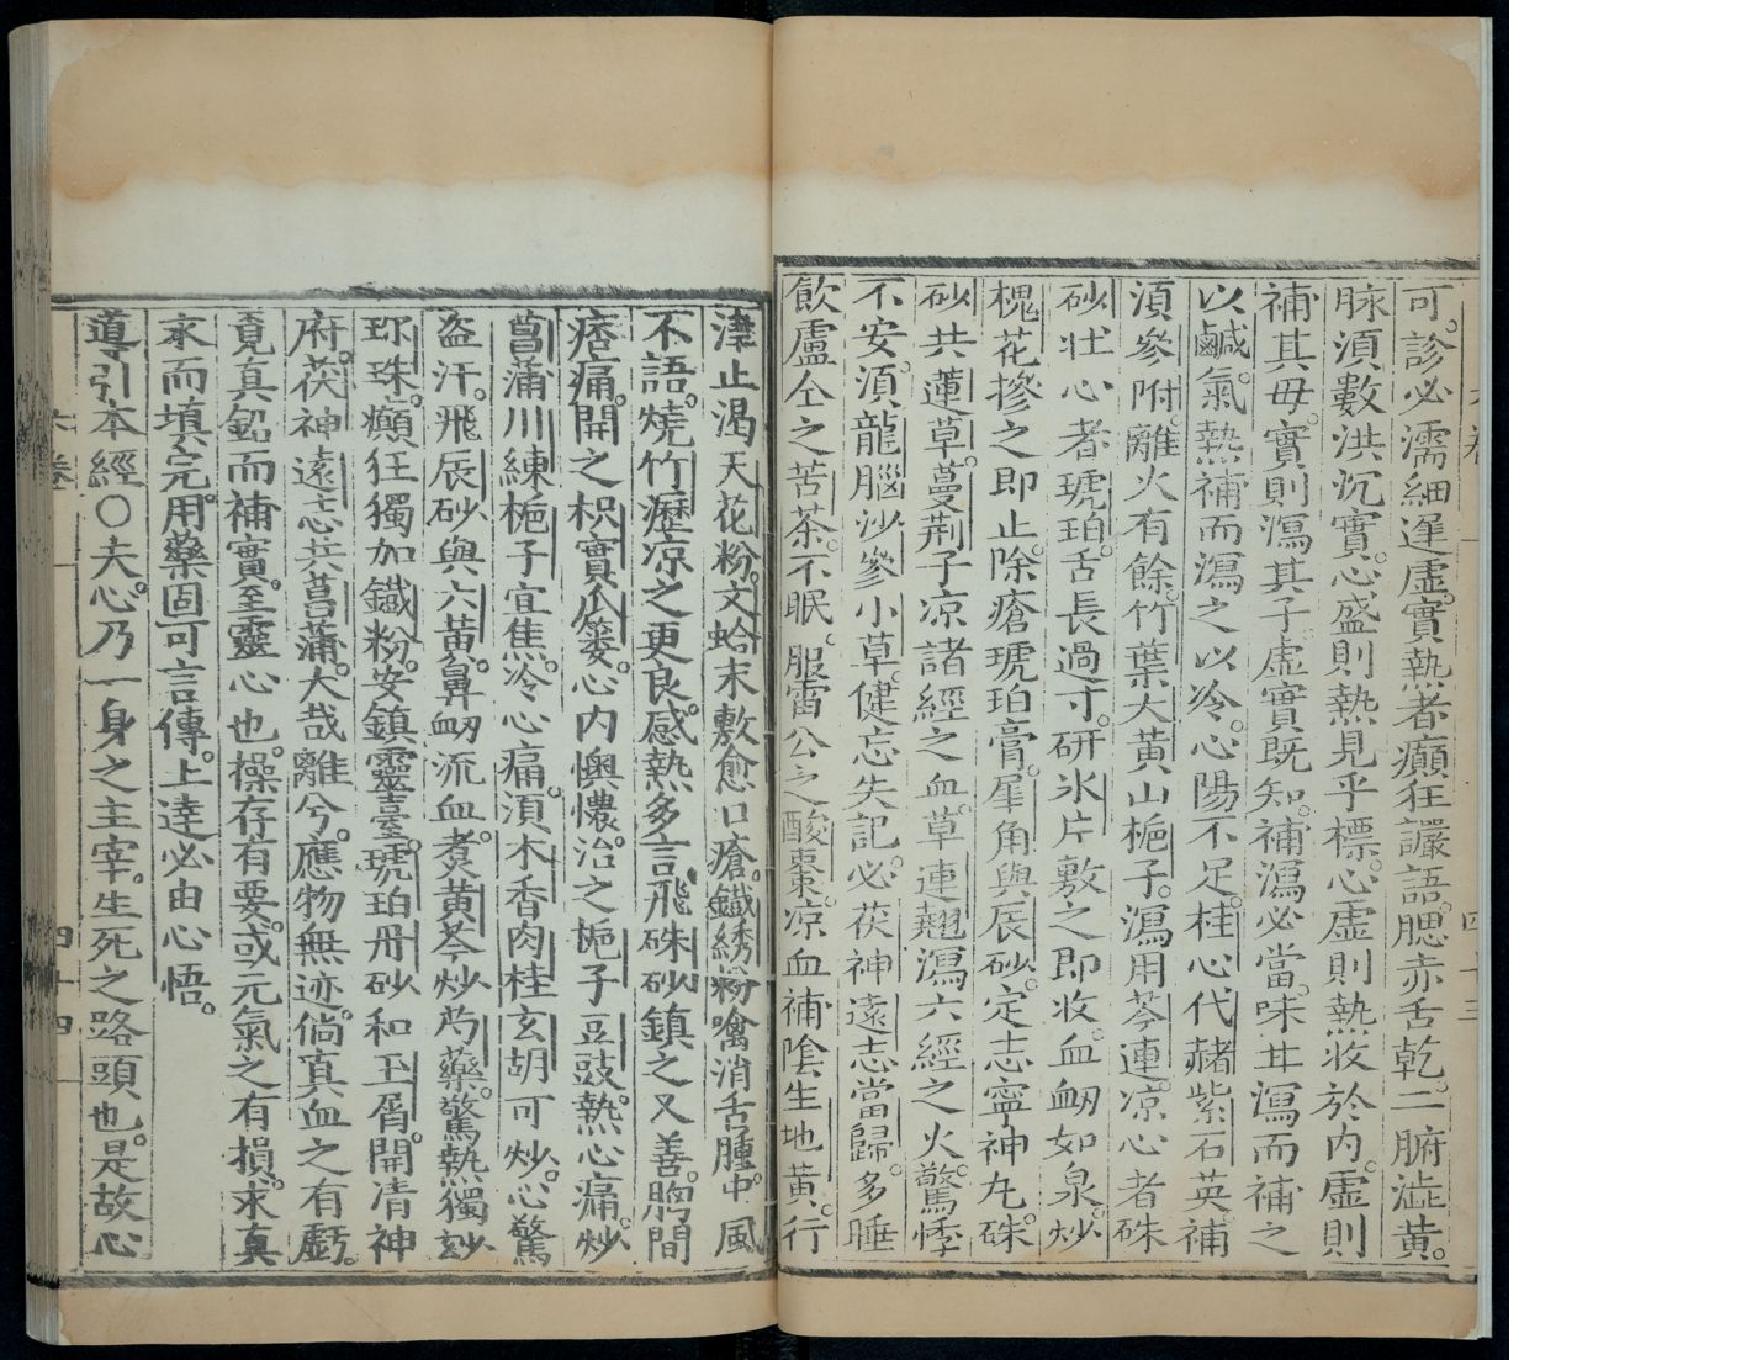 可。診必濡細遲虛。實熱者癲狂讝語。腮赤舌乾。二腑澁黃。
脉須數洪沉實。心盛則熱見乎標。心虛則熱收於内。虛則
補其毋。實則瀉其子。虛實既知。補瀉必當。味甘瀉而補之
以鹹。氣熱補而瀉之以冷。心陽不足。桂心代赭紫石英。補
須參附。離火有餘。竹葉大黃山梔子。瀉用芩連。凉心者硃
砂。壯心者琥珀。舌長過寸。研氷片敷之即收。血衂如泉。炒
槐花摻之即止。除瘡琥珀膏。犀角與辰砂。定志寧神丸。硃
砂共蓮草。蔓荆子凉諸經之血。草連翹瀉六經之火。驚悸
不安。須龍腦沙參小草。健忘失記。必茯神遠志當歸。多睡
飲盧仝之苦茶。不眠。服雷公之酸棗。凉血補陰生地黃。行
津止渴天花粉。文蛤末敷愈口瘡。鐵綉粉噙消舌腫。中風
不語。燒竹瀝凉之更良。感熱多言。飛硃砂鎮之又善。胷間
痞痛。開之枳實瓜蔞。心内懊憹。治之梔子豆豉。熱心痛。炒
菖蒲川練梔子宜焦。冷心痛。須木香肉桂玄胡可炒。心驚
盗汗。飛辰砂與六黃。鼻衂流血。煑黃芩炒芍藥。驚熱獨玅
珎珠。癲狂獨加鐵粉。安鎮靈臺。琥珀丹砂和玉屑。開清神
府。茯神遠志共菖蒲。大哉離兮。應物無迹。倘真血之有虧。
覔真鉛而補實。至靈心也。操存有要。或元氣之有損。求真
汞而填完。用藥固可言傳。上達必由心悟。
導引本經○夫心。乃一身之主宰。生死之路頭也。是故心
六卷
四十四